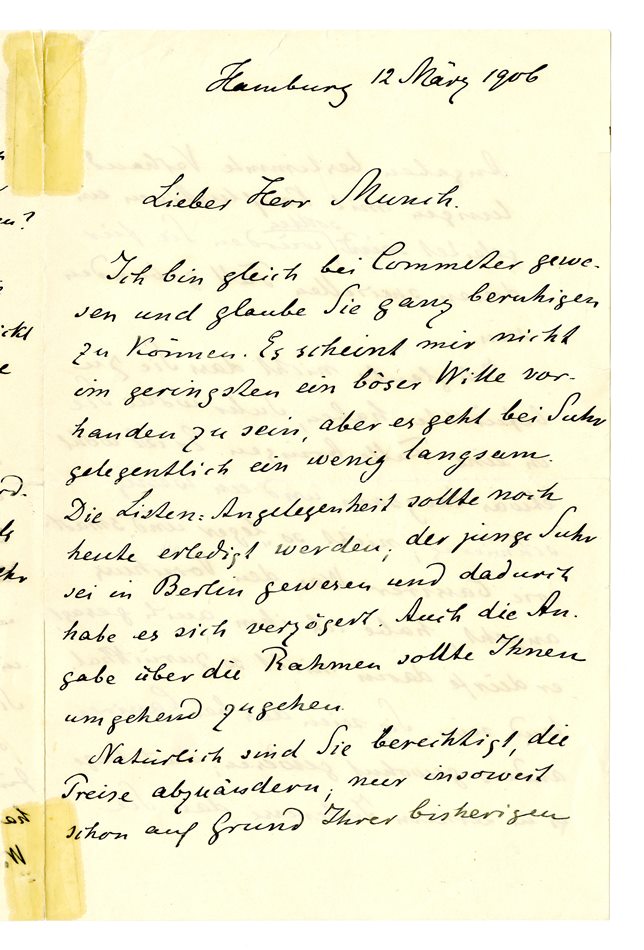 Hamburg 12 März 1906
Lieber Herr Munch.
Ich bin gleich bei Commeter gewe-
sen und glaube Sie ganz beruhigen
zu können. Es scheint mir nicht
im geringsten ein böser Wille vor-
handen zu sein, aber es geht bei Suhr
gelegentlich ein wenig langsam.
Die Listen=Angelegenheit sollte noch
heute erledigt werden; der junge Suhr
sei in Berlin gewesen und dadurch
habe es sich verzögert. Auch die An-
gabe über die Rahmen sollte Ihnen
umgehend zugehen.
Natürlich sind Sie berechtigt, die
Preise abzuändern; nur insoweit
schon auf Grund Ihrer bisherigen